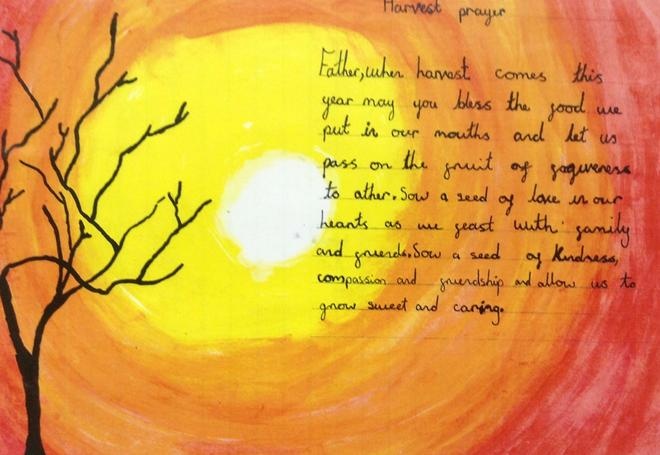 Harvest prayer
Father, when harvest comes this
year may you bless the food we
put in our mouths and let us
pass on the fruit of forgiveness
to other. Sow a seed of love in our
hearts as we feast with family
and friends. Sow a seed of kindness,
compassion and friendship and allow us to
grow sweet and caring.